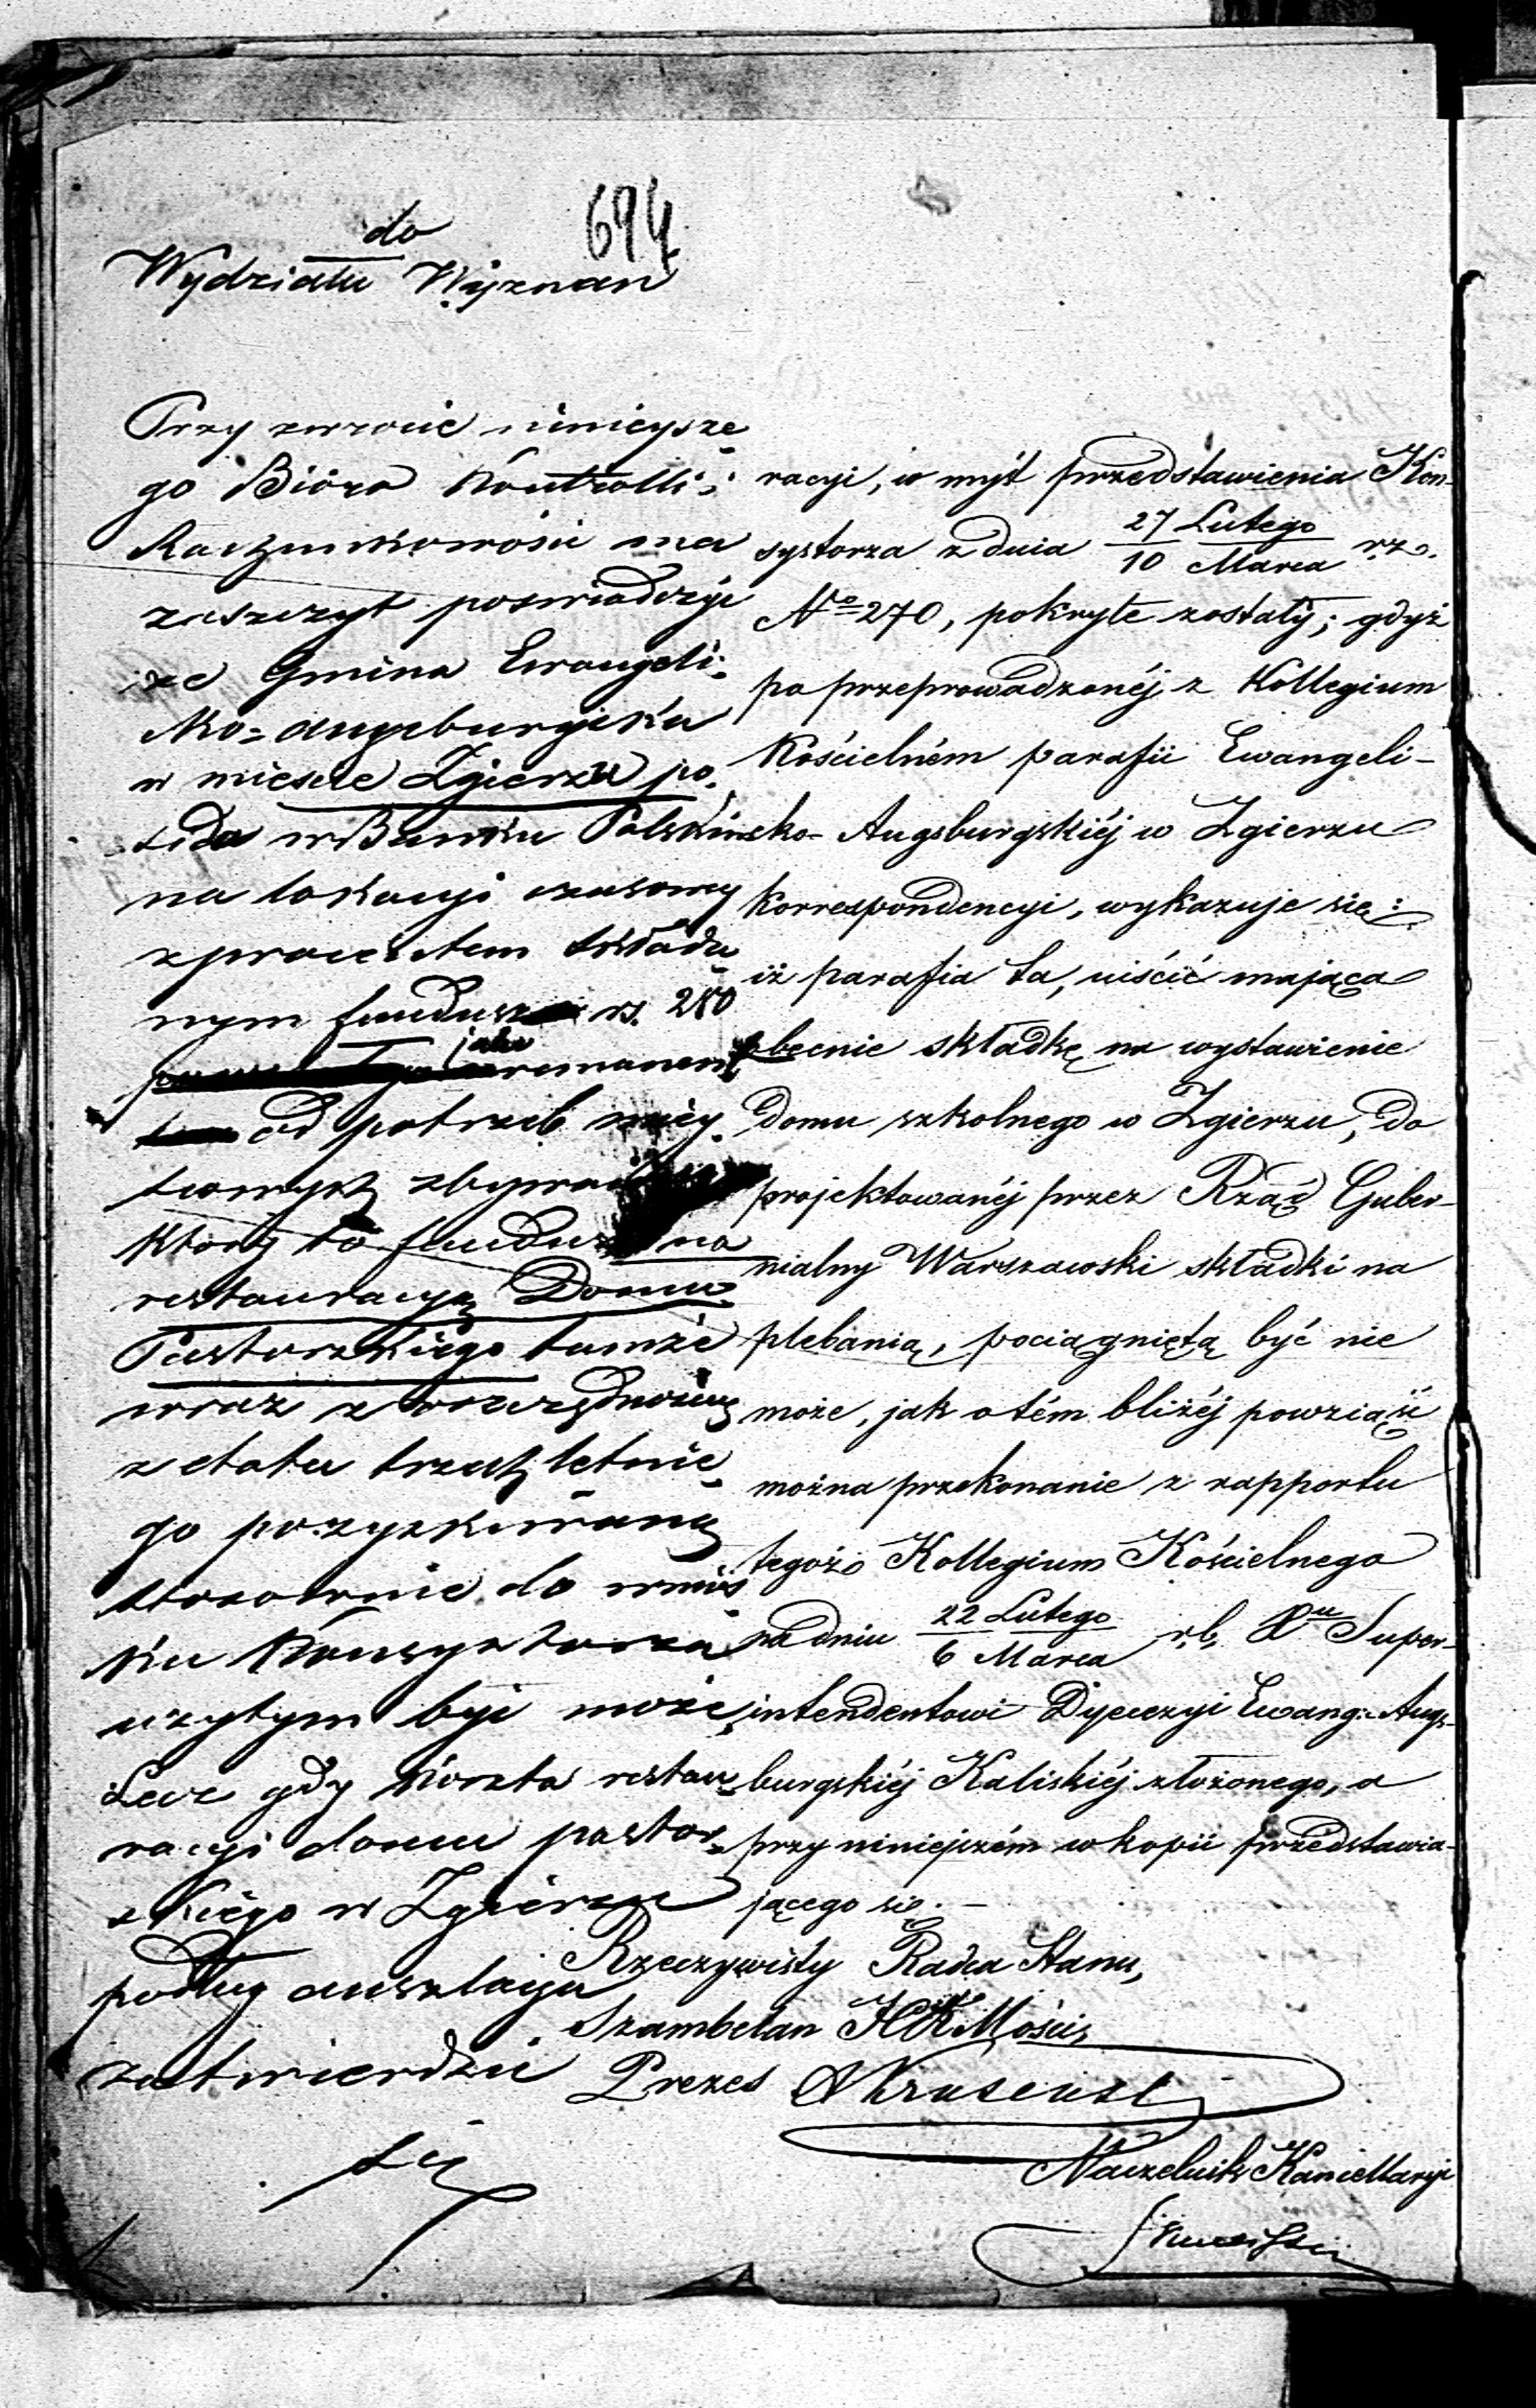 694
do
Wydziału Wyznań
Przy zwrocie niniejsze
go Bióro Kontrolli i
Rachunkowości ma
zaszczyt poświadczyć
że Gmina Ewangeli-
cko-Augsburgska
w mieście Zgierzu po-
siada w Banku Polskim
na lokacyi czasowey
z procentem składa
nym fundusz rs. 250
jako remanent
od potrzeb miey-
scowych
który to fundusz na
restauracyą Domu
Pastorskiego tamże
wraz z oszczędnością
z etatu trzechletnie-
go pozyskiwaną
stosownie do wnios-
ku Konsystorza
użytym być może,
Lecz gdy koszta restau-
racyi domu pastor-
skiego w Zgierzu
podług anszlagu
zatwierdzi
racyi, w myśl przedstawienia Kon-
systorza z dnia 27 Lutego / 10 Marca r. z.
No 270, pokryte zostały; gdyż
po przeprowadzonéj z Kollegium
Kościelném parafii Ewangeli-
cko-Augsburgskiéj w Zgierzu
korrespondencyi, wykazuje się:
iż parafia ta, uiścić mająca
obecnie składkę na wystawienie
domu szkolnego w Zgierzu, do
projektowanéj przez Rząd Guber-
nialny Warszawski składki na
plebanią, pociągniętą być nie
może, jak o tém bliżéj powziąść
można przekonanie z rapportu
tegoż Kollegium Kościelnego
pod dniu 22 Lutego / 6 Marca r. b. Xu Super-
intendentowi Dyecezyi Ewang: Augs-
burgskiéj Kaliskiéj złożonego, a
przy niniejszém w kopii przedstawia-
jącego się. —
Rzeczywisty Radca Stanu,
Szambelan JCK Mości,
Prezes
Naczelnik Kancellaryi